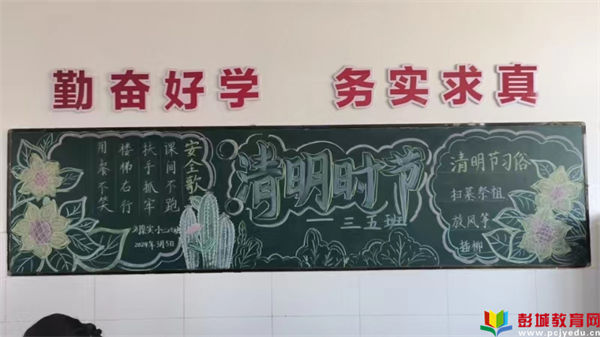 勤奋好学 务实求真
安全歌
课间不跑
扶手抓牢
楼梯右行
用餐不笑
2024年3月5日
清明时节
—三五班
清明节习俗
扫墓祭祖
放风筝
插柳
彭城教育网
www.pcjyedu.cn